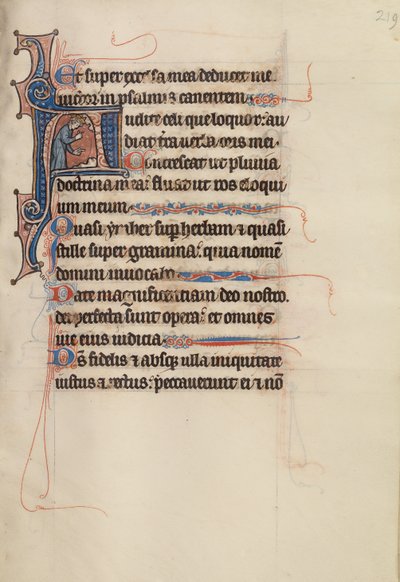 219
Et super excelsa mea deducet me
uictor in psalmis canentem.
Audite celi que loquor: au
diat terra uerba oris mei.
Concrescat ut pluuia
doctrina mea: fluat ut ros eloqui
um meum.
Quasi ymber super herbam & quasi
stille super gramina: quia nomen
domini inuocabo.
Date magnificentiam deo nostro.
dei perfecta sunt opera: et omnes
uie eius iudicia.
Ds fidelis & absque ulla iniquitate
iustus & rectus: peccauerunt ei & non